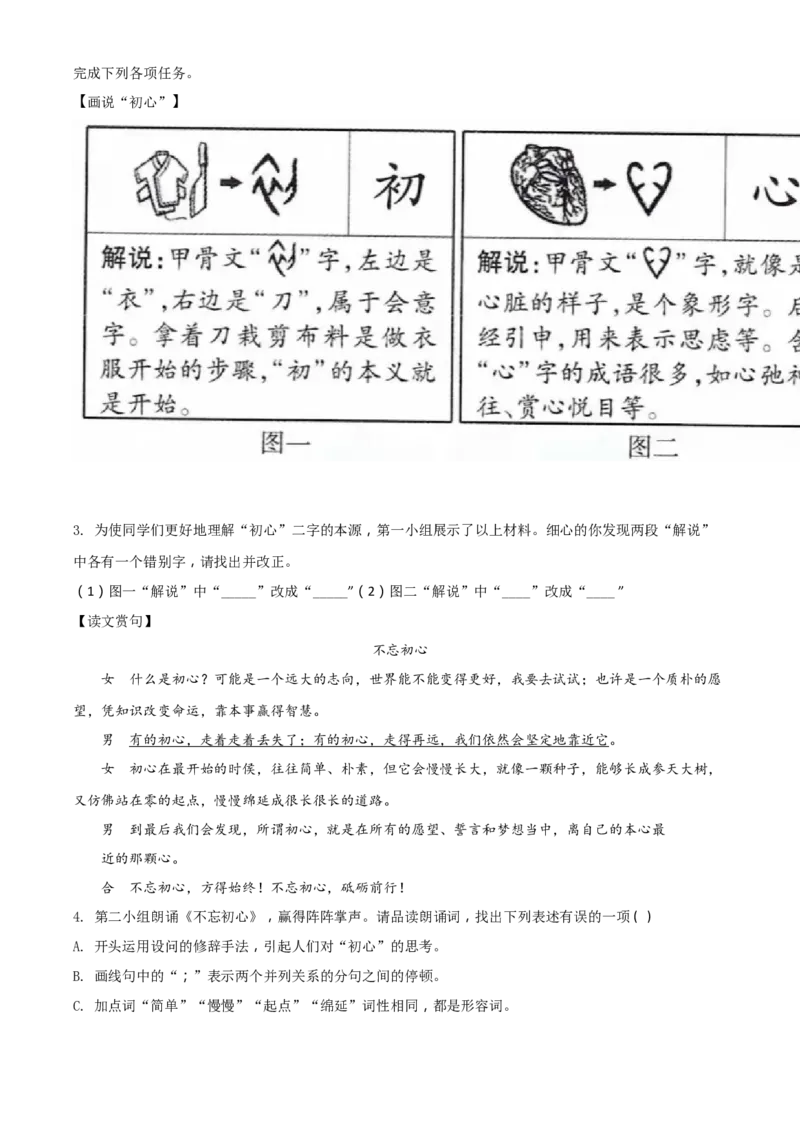 完成下列各项任务。
【画说“初心”】
初
心
解说：甲骨文“ ”字，左边是
“衣”，右边是“刀”，属于会意
字。拿着刀栽剪布料是做衣
服开始的步骤，“初”的本义就
是开始。
解说：甲骨文“ ”字，就像是
心脏的样子，是个象形字。后
经引申，用来表示思虑等。含
“心”字的成语很多，如心弛神
往、赏心悦目等。
图一
图二
3. 为使同学们更好地理解“初心”二字的本源，第一小组展示了以上材料。细心的你发现两段“解说”
中各有一个错别字，请找出并改正。
（1）图一“解说”中“_____”改成“_____”（2）图二“解说”中“____”改成“____”
【读文赏句】
不忘初心
女 什么是初心？可能是一个远大的志向，世界能不能变得更好，我要去试试；也许是一个质朴的愿
望，凭知识改变命运，靠本事赢得智慧。
男 有的初心，走着走着丢失了；有的初心，走得再远，我们依然会坚定地靠近它。
女 初心在最开始的时侯，往往简单、朴素，但它会慢慢长大，就像一颗种子，能够长成参天大树，
又仿佛站在零的起点，慢慢绵延成很长很长的道路。
男 到最后我们会发现，所谓初心，就是在所有的愿望、誓言和梦想当中，离自己的本心最
近的那颗心。
合 不忘初心，方得始终！不忘初心，砥砺前行！
4. 第二小组朗诵《不忘初心》，赢得阵阵掌声。请品读朗诵词，找出下列表述有误的一项( )
A. 开头运用设问的修辞手法，引起人们对“初心”的思考。
B. 画线句中的“；”表示两个并列关系的分句之间的停顿。
C. 加点词“简单”“慢慢”“起点”“绵延”词性相同，都是形容词。